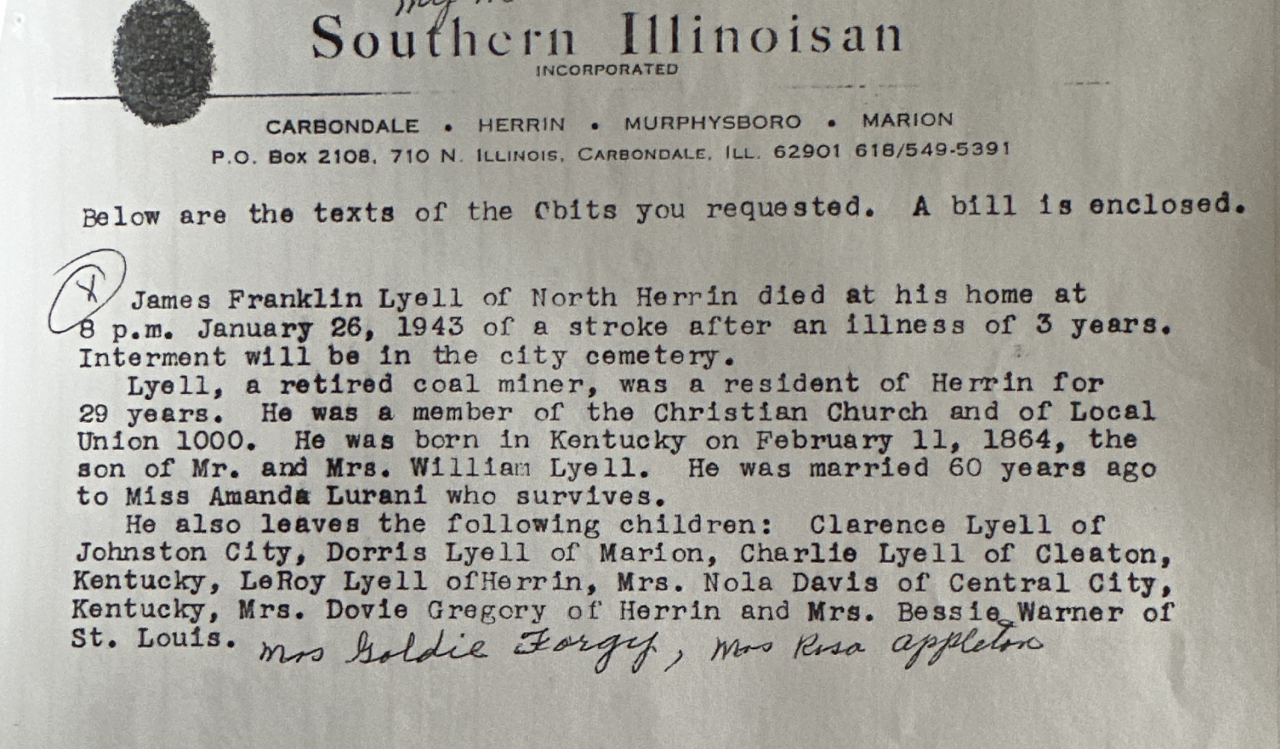 Southern Illinoisan
INCORPORATED
CARBONDALE • HERRIN • MURPHYSBORO • MARION
P.O. Box 2108, 710 N. ILLINOIS, CARBONDALE, ILL. 62901 618/549-5391
Below are the texts of the Obits you requested. A bill is enclosed.
X James Franklin Lyell of North Herrin died at his home at
8 p.m. January 26, 1943 of a stroke after an illness of 3 years.
Interment will be in the city cemetery.
Lyell, a retired coal miner, was a resident of Herrin for
29 years. He was a member of the Christian Church and of Local
Union 1000. He was born in Kentucky on February 11, 1864, the
son of Mr. and Mrs. William Lyell. He was married 60 years ago
to Miss Amanda Lurani who survives.
He also leaves the following children: Clarence Lyell of
Johnston City, Dorris Lyell of Marion, Charlie Lyell of Cleaton,
Kentucky, LeRoy Lyell ofHerrin, Mrs. Nola Davis of Central City,
Kentucky, Mrs. Dovie Gregory of Herrin and Mrs. Bessie Warner of
St. Louis. Mrs Goldie Forgy, Mrs Rosa Appleton